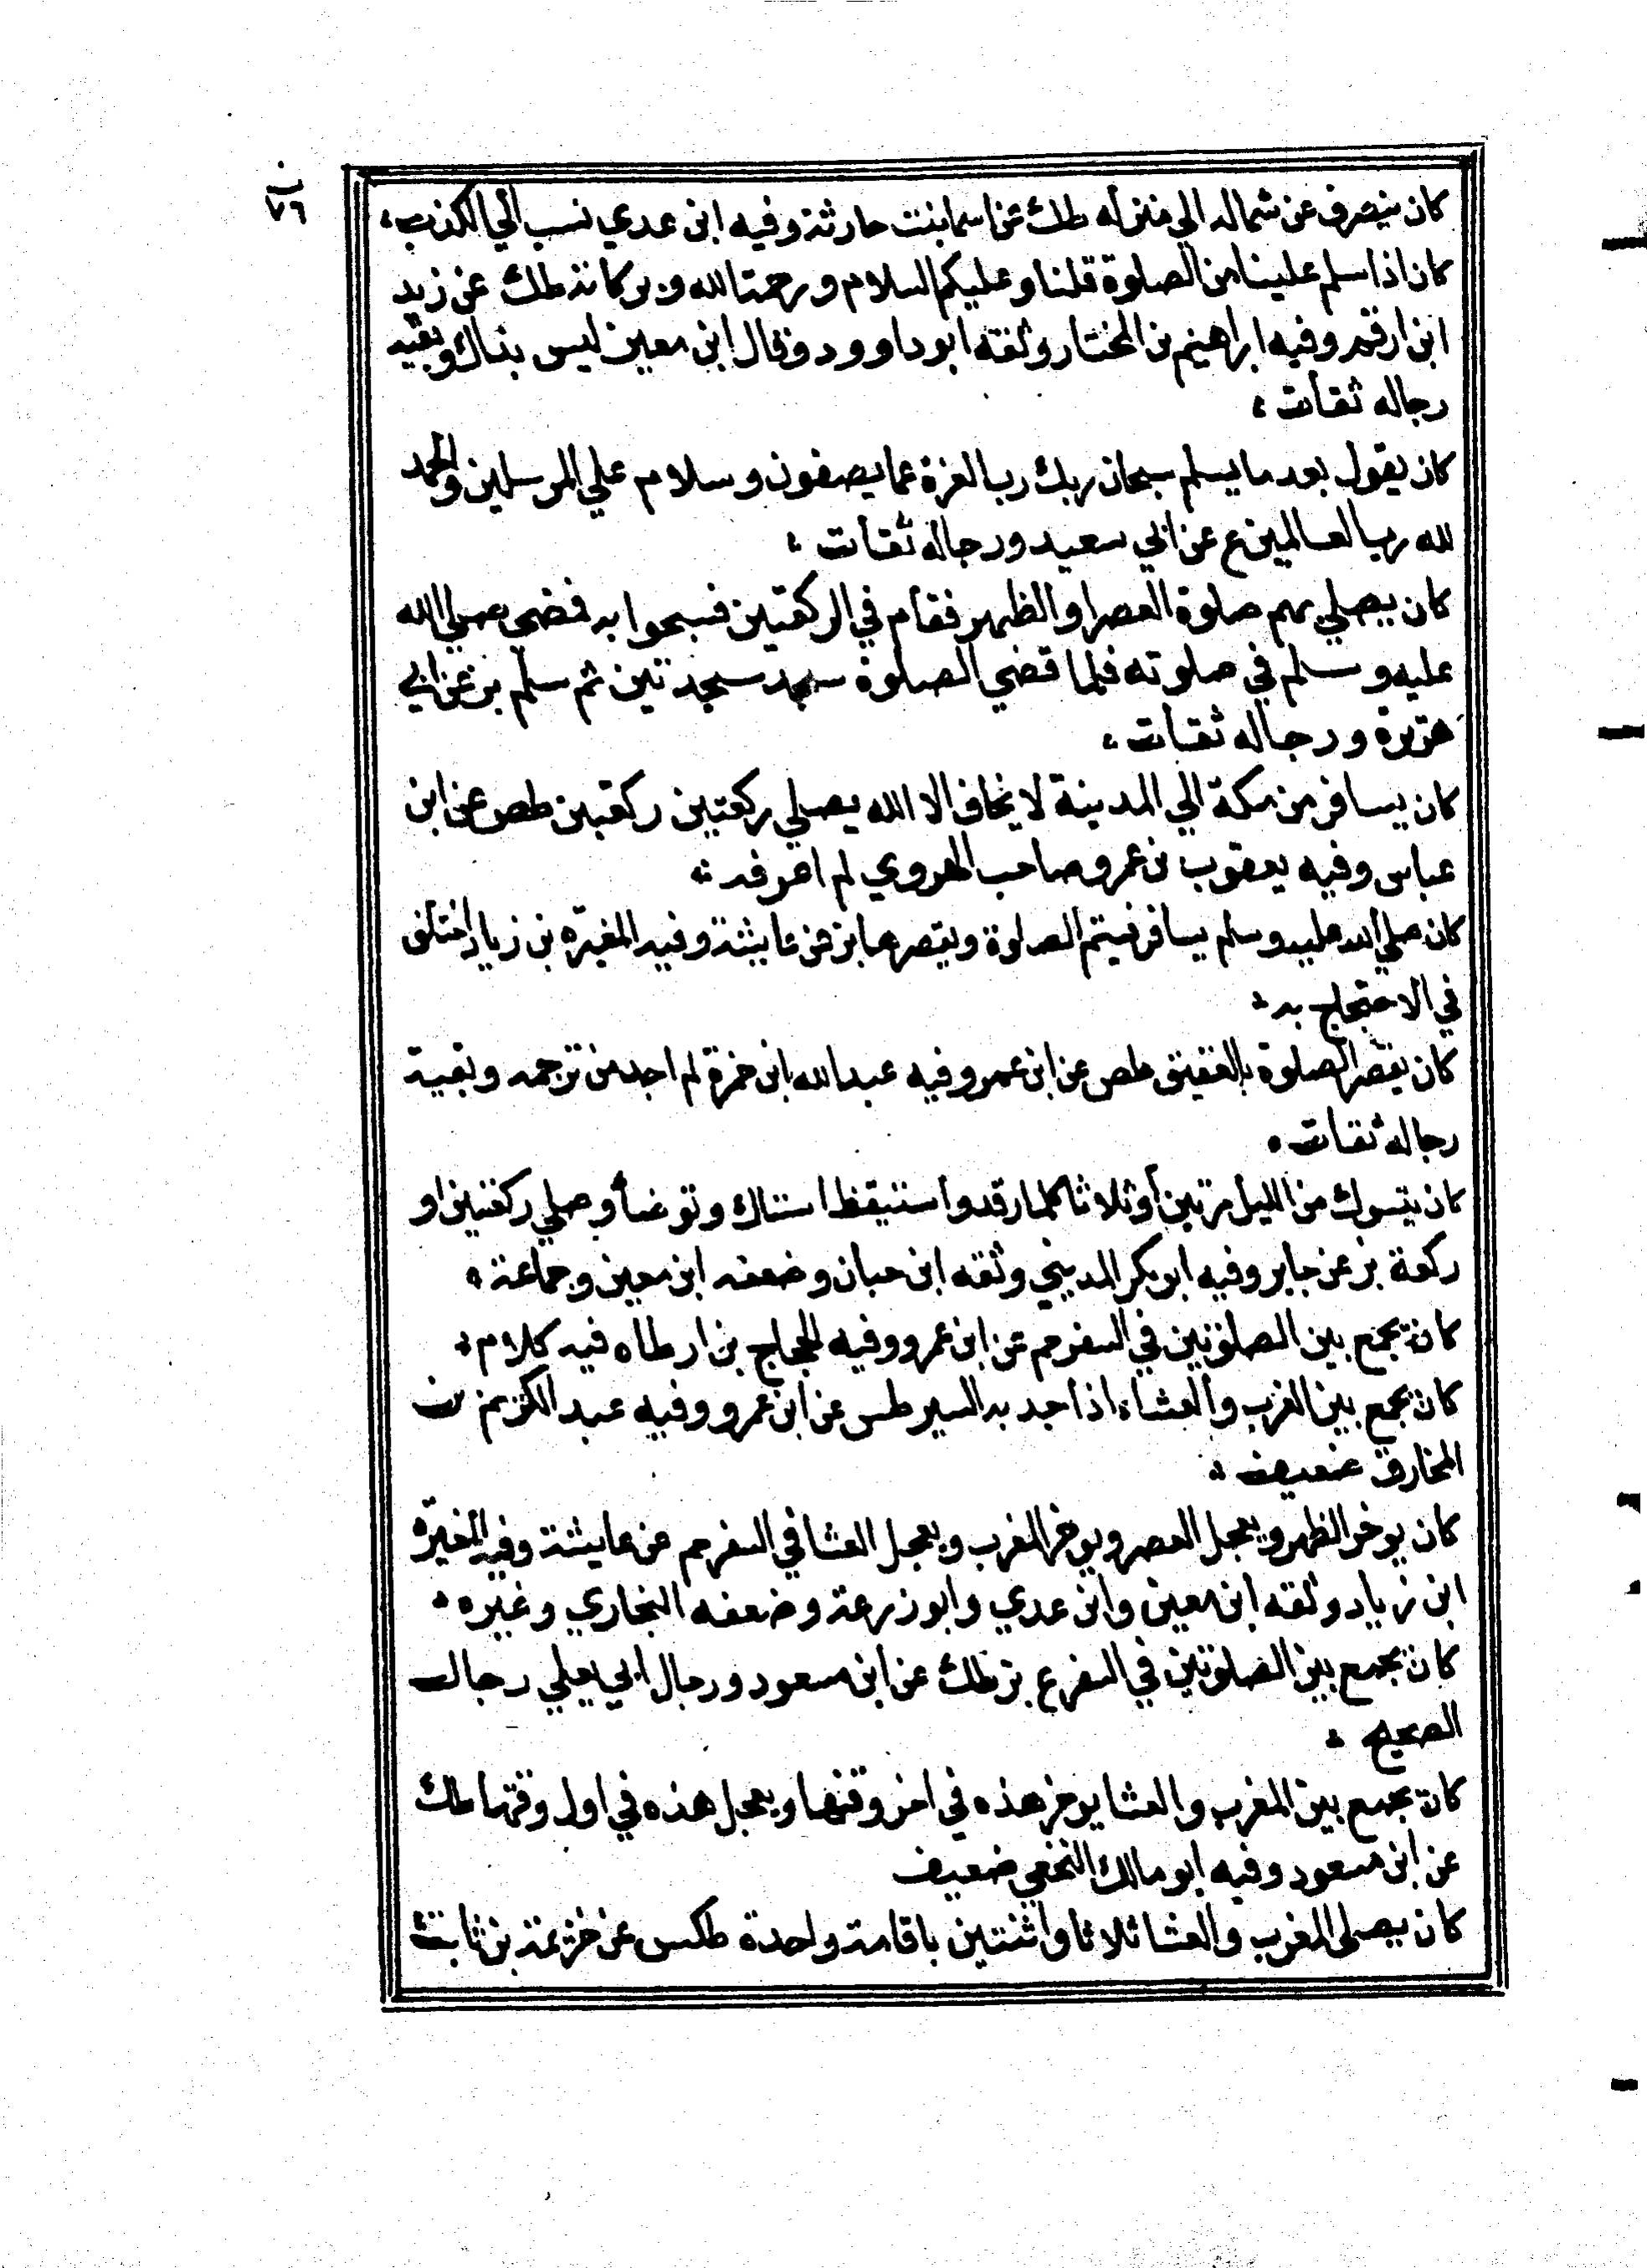 ٧٦
كان ينصرف عن شماله الي منزله طك عن اسما بنت حارثة وفيه ابن عدي نسب الي الكذب،
كان اذا سلم علينا من الصلوة قلنا وعليكم السلام ورحمة الله وبركاته طك عن زيد
ابن ارقم وفيه ابراهيم بن المختار وثقه ابو داوود وقال ابن معين ليس بذاك وبقية
رجاله ثقات ؛
كان يقول بعد ما يسلم سبحان ربك رب العزة عما يصفون وسلام علي المرسلين والحمد
لله رب العالمين ع عن ابي سعيد ورجاله ثقات ؛
كان يصلي بهم صلوة العصر او الظهر فقام في الركعتين فسبحوا به فمضي صلي الله
عليه وسلم في صلوته فلما قضي الصلوة سجد سجدتين ثم سلم بز عن ابي
هريرة ورجاله ثقات ؛
كان يسافر من مكة الي المدينة لا يخاف الا الله يصلي ركعتين ركعتين طص عن ابن
عباس وفيه يعقوب بن عمرو صاحب الهروي لم اعرفه ؛
كان صلي الله عليه وسلم يسافر فيتم الصلوة ويقصرها بز عن عايشة وفيه المغيره بن زياد اختلف
في الاحتجاج به ؛
كان يقصر الصلوة بالعقيق طص عن ابن عمر وفيه عبد الله ابن حمزة لم اجد من ترجمه وبقية
رجاله ثقات ؛
كان يتسوك من الليل مرتين أو ثلاثا كلما رقد واستيقظ استاك وتوضأ وصلي ركعتين او
ركعة بز عن جابر وفيه ابو بكر المديني وثقه ابن حبان وضعفه ابن معين وجماعة ؛
كان يجمع بين الصلوتين في السفر حم عن ابن عمرو وفيه الحجاج بن ارطاه فيه كلام ؛
كان يجمع بين المغرب والعشاء اذا جد به السير طس عن ابن عمرو وفيه عبد الكريم بن
المخارق ضعيف ؛
كان يوخر الظهر ويعجل العصر ويوخر المغرب ويعجل العشا في السفر حم عن عايشة وفيه المغيره
ابن زياد وثقه ابن معين وابن عدي وابو زرعة وضعفه البخاري وغيره ؛
كان يجمع بين الصلوتين في السفر ع بز طك عن ابن مسعود ورجال ابي يعلي رجال
الصحيح ؛
كان يجمع بين المغرب والعشا يوخر هذه في اخر وقتها ويعجل هذه في اول وقتها طك
عن ابن مسعود وفيه ابو مالك النخعي ضعيف
كان يصلي المغرب والعشا ثلاثا واثنتين باقامة واحدة طكس عن خزيمة بن ثابت